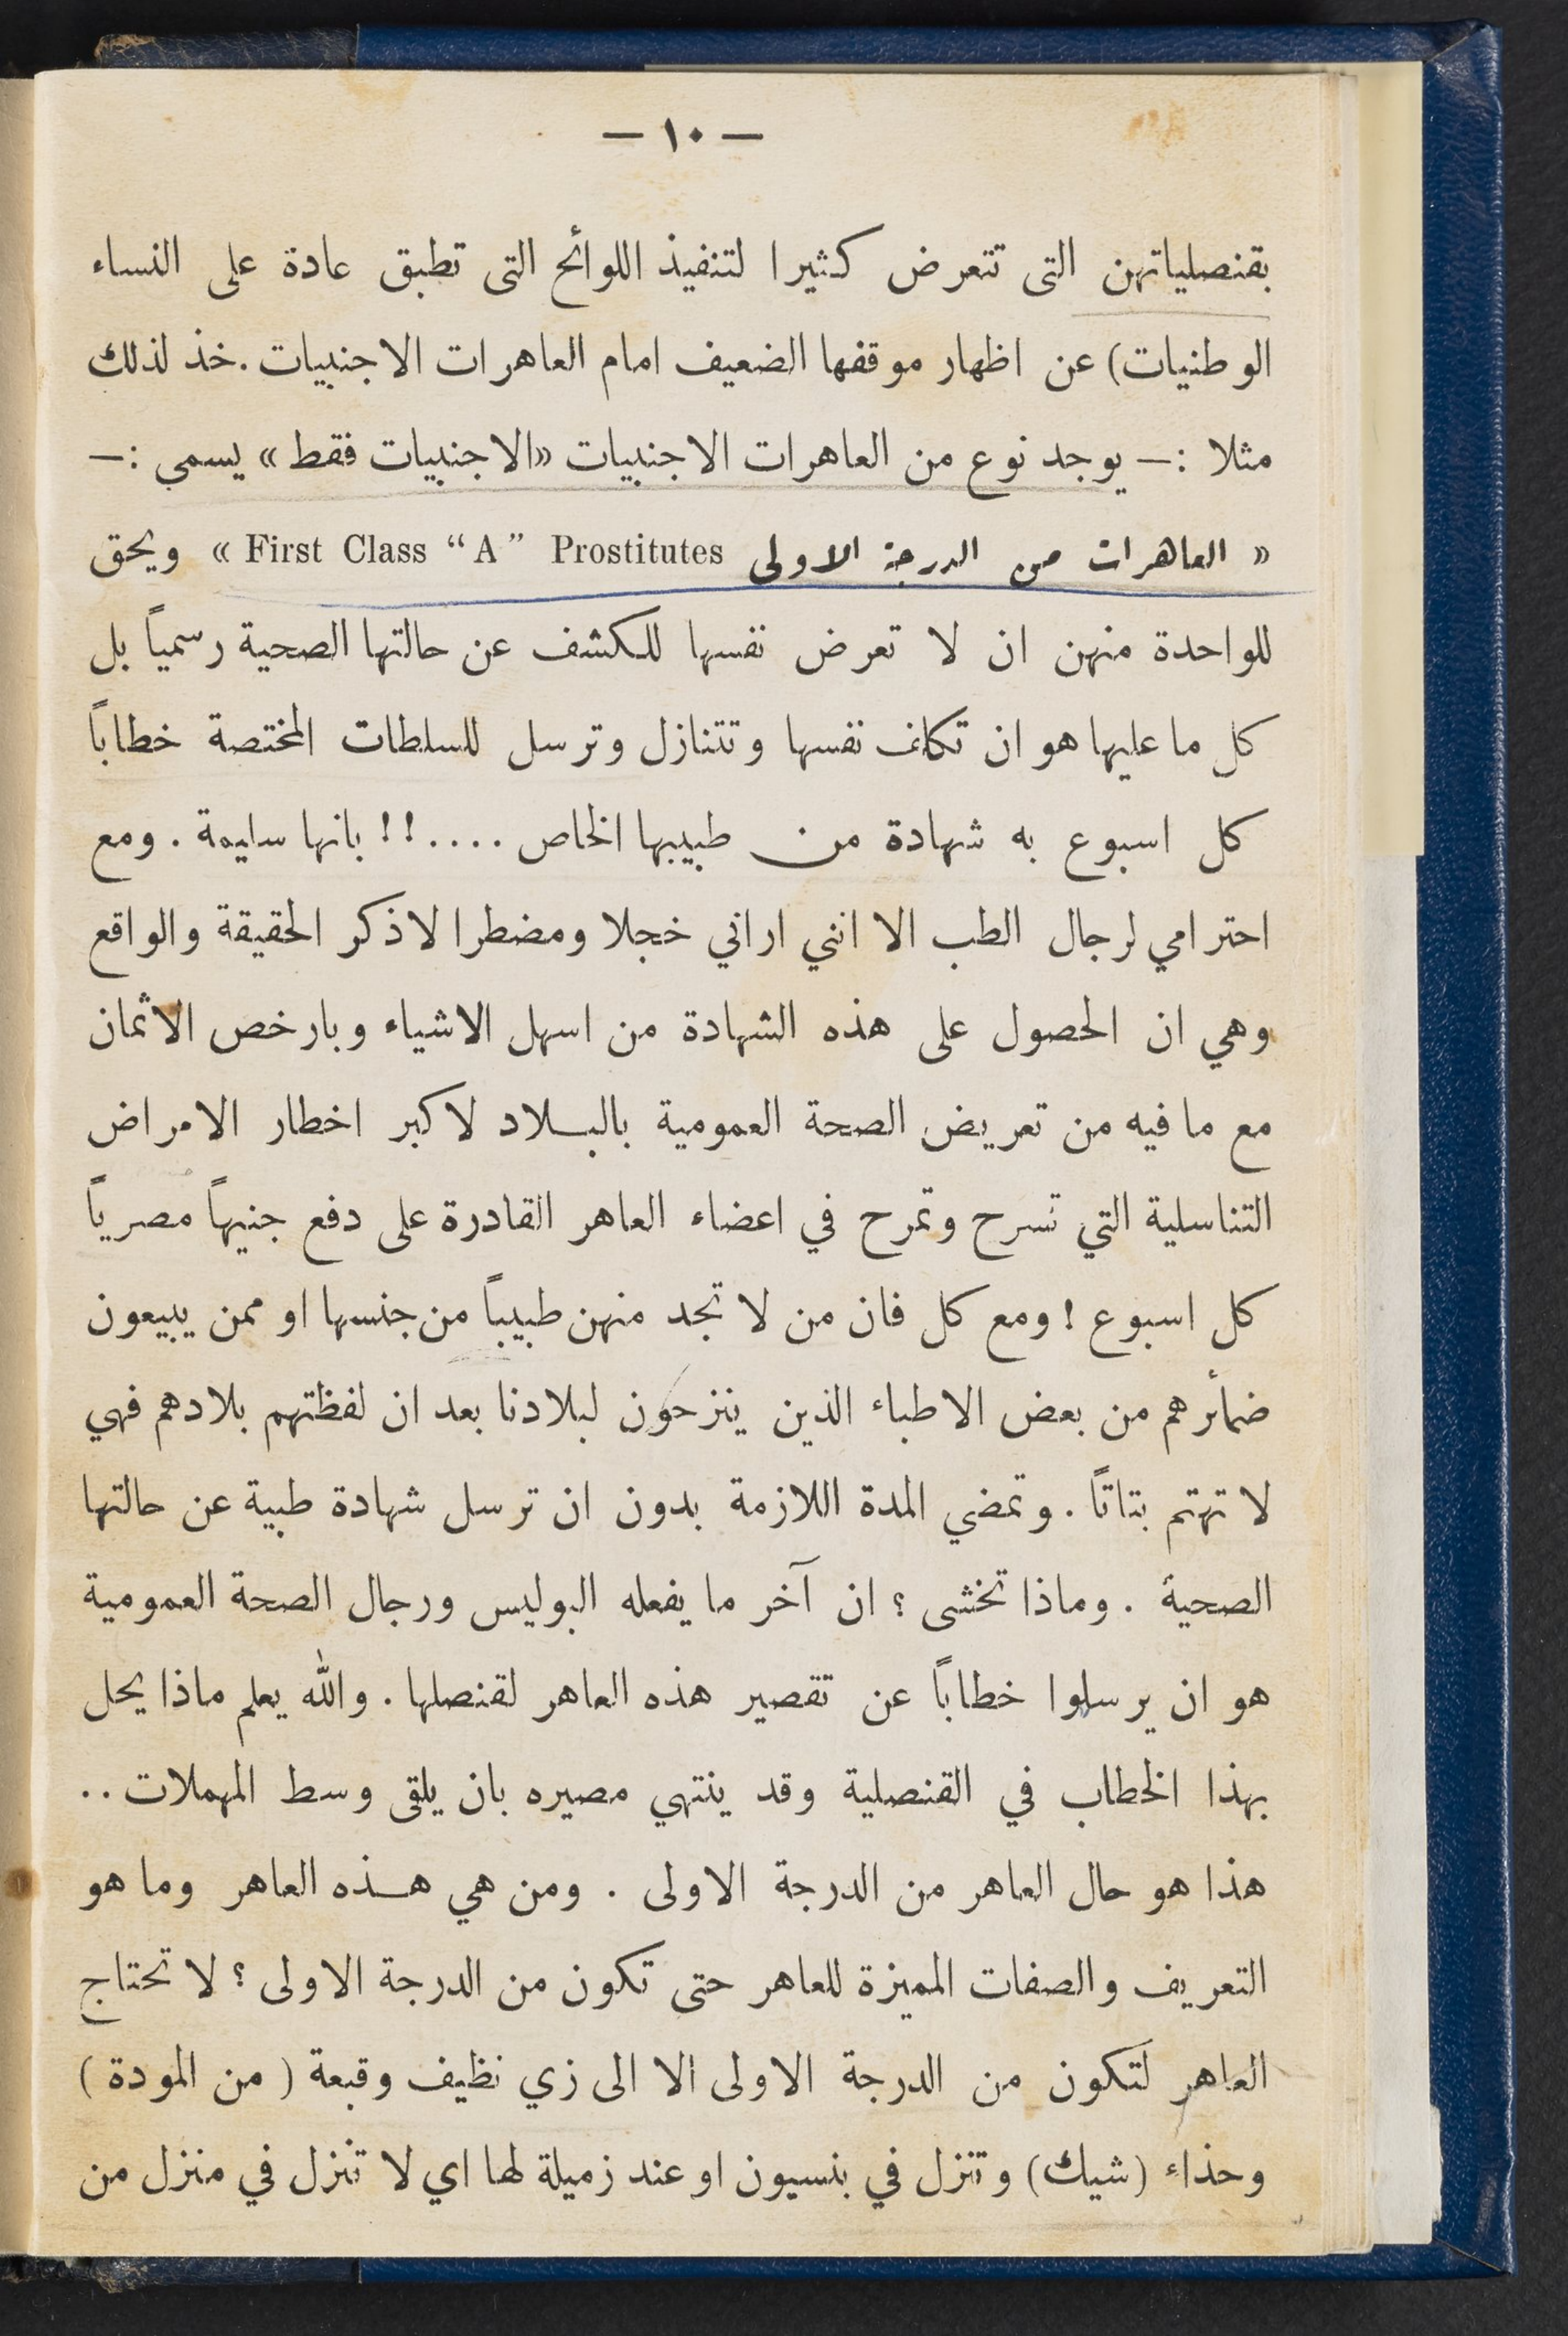 — ١٠ —
بقنصلياتهن التى تتعرض كثيرا لتنفيذ اللوائح التى تطبق عادة على النساء
الوطنيات) عن اظهار موقفها الضعيف امام العاهرات الاجنبيات . خذ لذلك
مثلا :— يوجد نوع من العاهرات الاجنبيات «الاجنبيات فقط» يسمي :—
« العاهرات من الدرجة الاولى First Class “A” Prostitutes » ويحق
للواحدة منهن ان لا تعرض نفسها للكشف عن حالتها الصحية رسمياً بل
كل ما عليها هو ان تكلف نفسها وتتنازل وترسل للسلطات المختصة خطاباً
كل اسبوع به شهادة من طبيبها الخاص ....!! بانها سليمة . ومع
احترامي لرجال الطب الا انني اراني خجلا ومضطرا لاذكر الحقيقة والواقع
وهي ان الحصول على هذه الشهادة من اسهل الاشياء وبارخص الاثمان
مع ما فيه من تعريض الصحة العمومية بالبلاد لاكبر اخطار الامراض
التناسلية التي تسرح وتمرح في اعضاء العاهر القادرة على دفع جنيهاً مصرياً
كل اسبوع ! ومع كل فان من لا تجد منهن طبيباً من جنسها او ممن يبيعون
ضمائرهم من بعض الاطباء الذين ينزحون لبلادنا بعد ان لفظتهم بلادهم فهي
لا تهتم بتاتاً . وتمضي المدة اللازمة بدون ان ترسل شهادة طبية عن حالتها
الصحية . وماذا تخشى ؟ ان آخر ما يفعله البوليس ورجال الصحة العمومية
هو ان يرسلوا خطاباً عن تقصير هذه العاهر لقنصلها . والله يعلم ماذا يحل
بهذا الخطاب في القنصلية وقد ينتهي مصيره بان يلقى وسط المهملات ..
هذا هو حال العاهر من الدرجة الاولى . ومن هي هذه العاهر وما هو
التعريف والصفات المميزة للعاهر حتى تكون من الدرجة الاولى ؟ لا تحتاج
العاهر لتكون من الدرجة الاولى الا الى زي نظيف وقبعة ( من المودة )
وحذاء (شيك) وتنزل في بنسيون او عند زميلة لها اي لا تنزل في منزل من